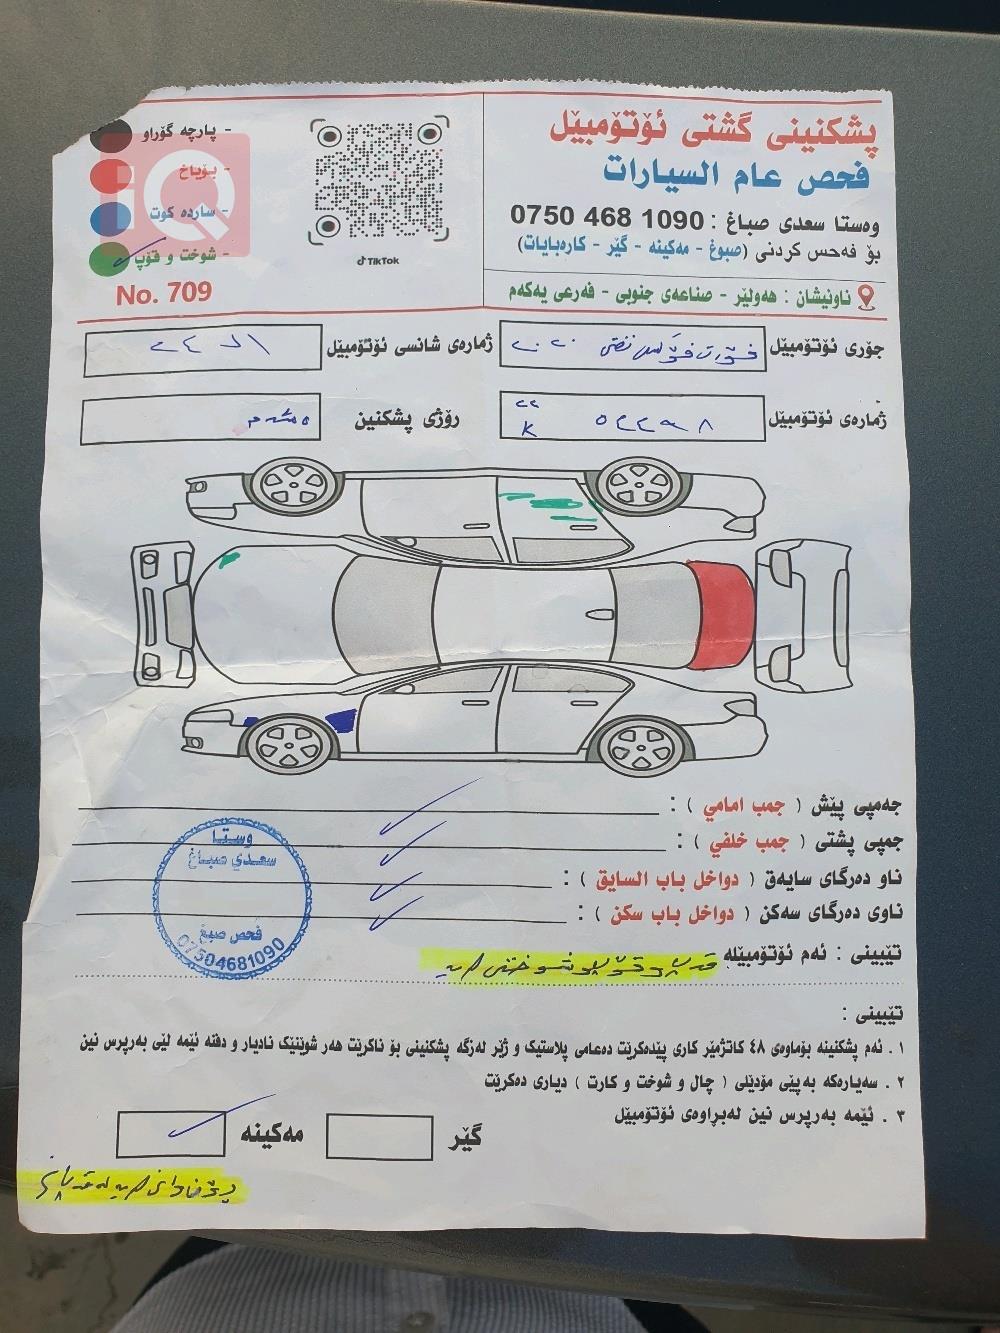 پشکنینی گشتی ئۆتۆمبێل
فحص عام السيارات
وەستا سعدی صباغ : 0750 468 1090
بۆ فەحس کردنی (صبوغ - مەکینە - گێر - کارەبایات)
ناونیشان : هەولێر - صناعەی جنوبی - فەرعی یەکەم
TikTok
- پارچە گۆراو
- بۆیاخ
- ساردە کوت
- شوخت و قۆپ
iQ
No. 709
جۆری ئۆتۆمبێل
ژمارەی شانسی ئۆتۆمبێل
ژمارەی ئۆتۆمبێل ٢٢ K
رۆژی پشکنین
جەمپی پێش ( جمب امامي ) :
جمپی پشتی ( جمب خلفي ) :
ناو دەرگای سایەق ( دواخل باب السایق ) :
ناوی دەرگای سەکن ( دواخل باب سکن ) :
وستا
سعدي صباغ
فحص صبغ
07504681090
تێبینی : ئەم ئۆتۆمبێلە
تێبینی :
١ . ئەم پشکنینە بۆماوەی ٤٨ کاتژمێر کاری پێدەکرێت دەعامی پلاستیک و ژێر لەزگە پشکنینی بۆ ناکرێت هەر شوێنێک نادیار و دفتە ئێمە لێی بەرپرس نین
٢ . سەیارەکە بەپێی مۆدێلی ( چاڵ و شوخت و کارت ) دیاری دەکرێت
٣ . ئێمە بەرپرس نین لەبڕاوەی ئۆتۆمبێل
گێر
مەکینە